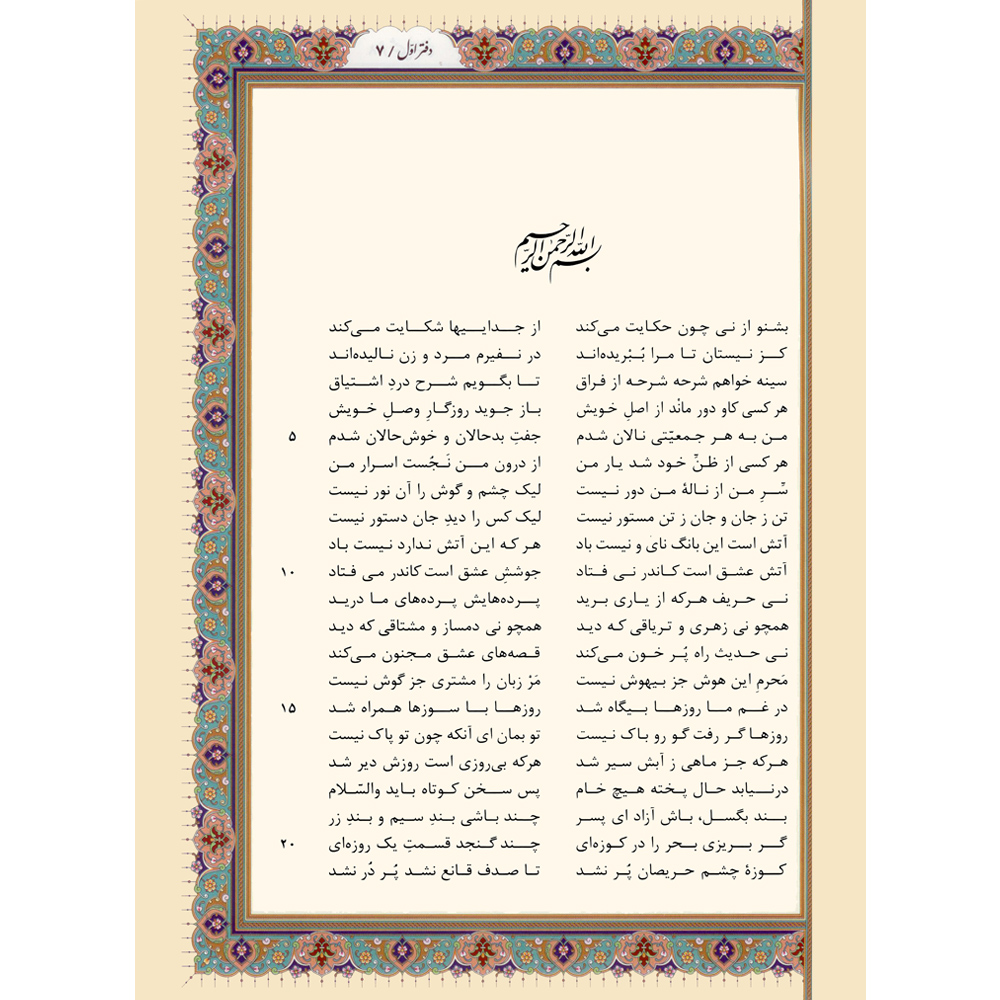 دفتر اوّل / ۷
بسم الله الرحمن الرحیم
بشنو از نی چون حکایت می‌کند از جدایـیها شکایت می‌کند
کز نیستان تا مرا بُبْریده‌اند در نفیرم مرد و زن نالیده‌اند
سینه خواهم شرحه شرحه از فراق تا بگویم شرح دردِ اشتیاق
هر کسی کاو دور مانْد از اصلِ خویش باز جوید روزگارِ وصلِ خویش
من به هر جمعیّتی نالان شدم جفتِ بدحالان و خوش‌حالان شدم ۵
هر کسی از ظنِّ خود شد یار من از درون من نَجُست اسرار من
سِّرِ من از نالهٔ من دور نیست لیک چشم و گوش را آن نور نیست
تن ز جان و جان ز تن مستور نیست لیک کس را دیدِ جان دستور نیست
آتش است این بانگ نایَ و نیست باد هر که این آتش ندارد نیست باد
آتش عشق است کاندر نی فتاد جوششِ عشق است کاندر می فتاد ۱۰
نی حریف هرکه از یاری برید پرده‌هایش پرده‌های ما درید
همچو نی زهری و تریاقی که دید همچو نی دمساز و مشتاقی که دید
نی حدیث راه پُر خون می‌کند قصه‌های عشق مجنون می‌کند
مَحرمِ این هوش جز بیهوش نیست مَرْ زبان را مشتری جز گوش نیست
در غم ما روزها بیگاه شد روزها با سوزها همراه شد ۱۵
روزها گر رفت گو رو باک نیست تو بمان ای آنکه چون تو پاک نیست
هرکه جز ماهی ز آبش سیر شد هرکه بی‌روزی است روزش دیر شد
درنیابد حال پخته هیچ خام پس سخن کوتاه باید والسّلام
بند بگسل، باش آزاد ای پسر چند باشی بندِ سیم و بندِ زر
گر بریزی بحر را در کوزه‌ای چند گنجد قسمتِ یک روزه‌ای ۲۰
کوزهٔ چشم حریصان پُر نشد تا صدف قانع نشد پُر دُر نشد